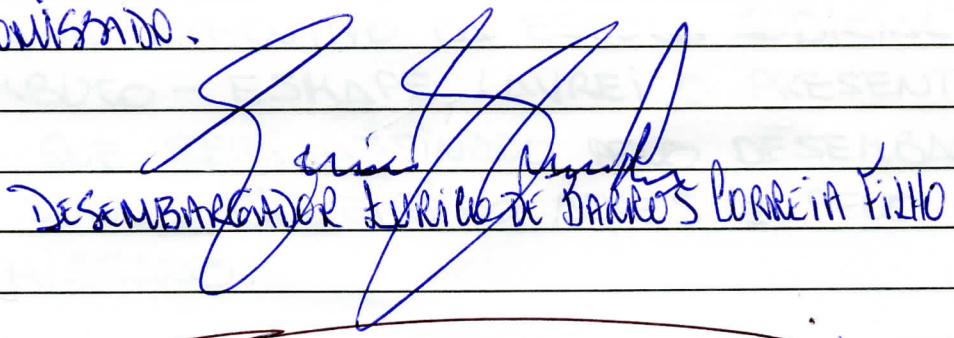 OMISSADO.
DESEMBARGADOR EURICO DE BARROS CORREIA FILHO